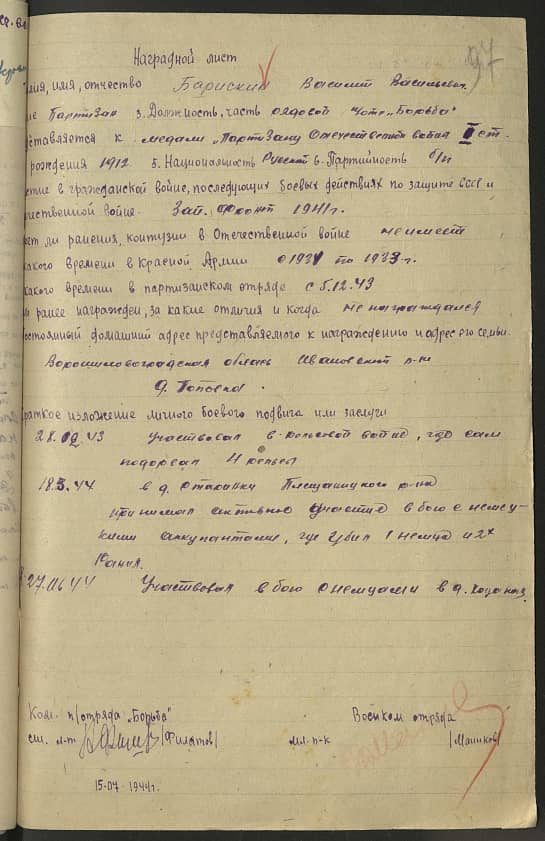 97
Наградной лист
имя, отчество Барискин Василий Васильевич
Партизан 3. Должность, часть рядовой "Борьба"
ставляется к медали "Партизану Отечественной войны" II ст.
рождения 1912 5. Национальность Русский 6. Партийность б/п
в гражданской войне, последующих боевых действиях по защите СССР и
ественной войне. Зап. Фронт 1941 г.
ет ли ранения, контузии в Отечественной войне не имеет
какого времени в Красной Армии с по 1933 г.
какого времени в партизанском отряде с 5.12.43
ранее награжден, за какие отличия и когда не награждался
остоянный домашний адрес представляемого к награждению и адрес его семьи.
Ворошиловоградская область Ивановский р-он
д. Поповка.
раткое изложение личного боевого подвига или заслуги
43 Участвовал в рельсовой войне, где сам
подорвал 4 рельсы
44 в д. Плещаницкого р-на
принимал активное участие в бою с немец-
кими аккупантами, где убил 1 немца и 2х
ранил.
27.06 44 Участвовал в бою с немцами в д.
Ком. п/отряда "Борьба" Военком отряда
ст. л-т /Филатов/ мл. п-к /Маликов/
15-07-1944 г.